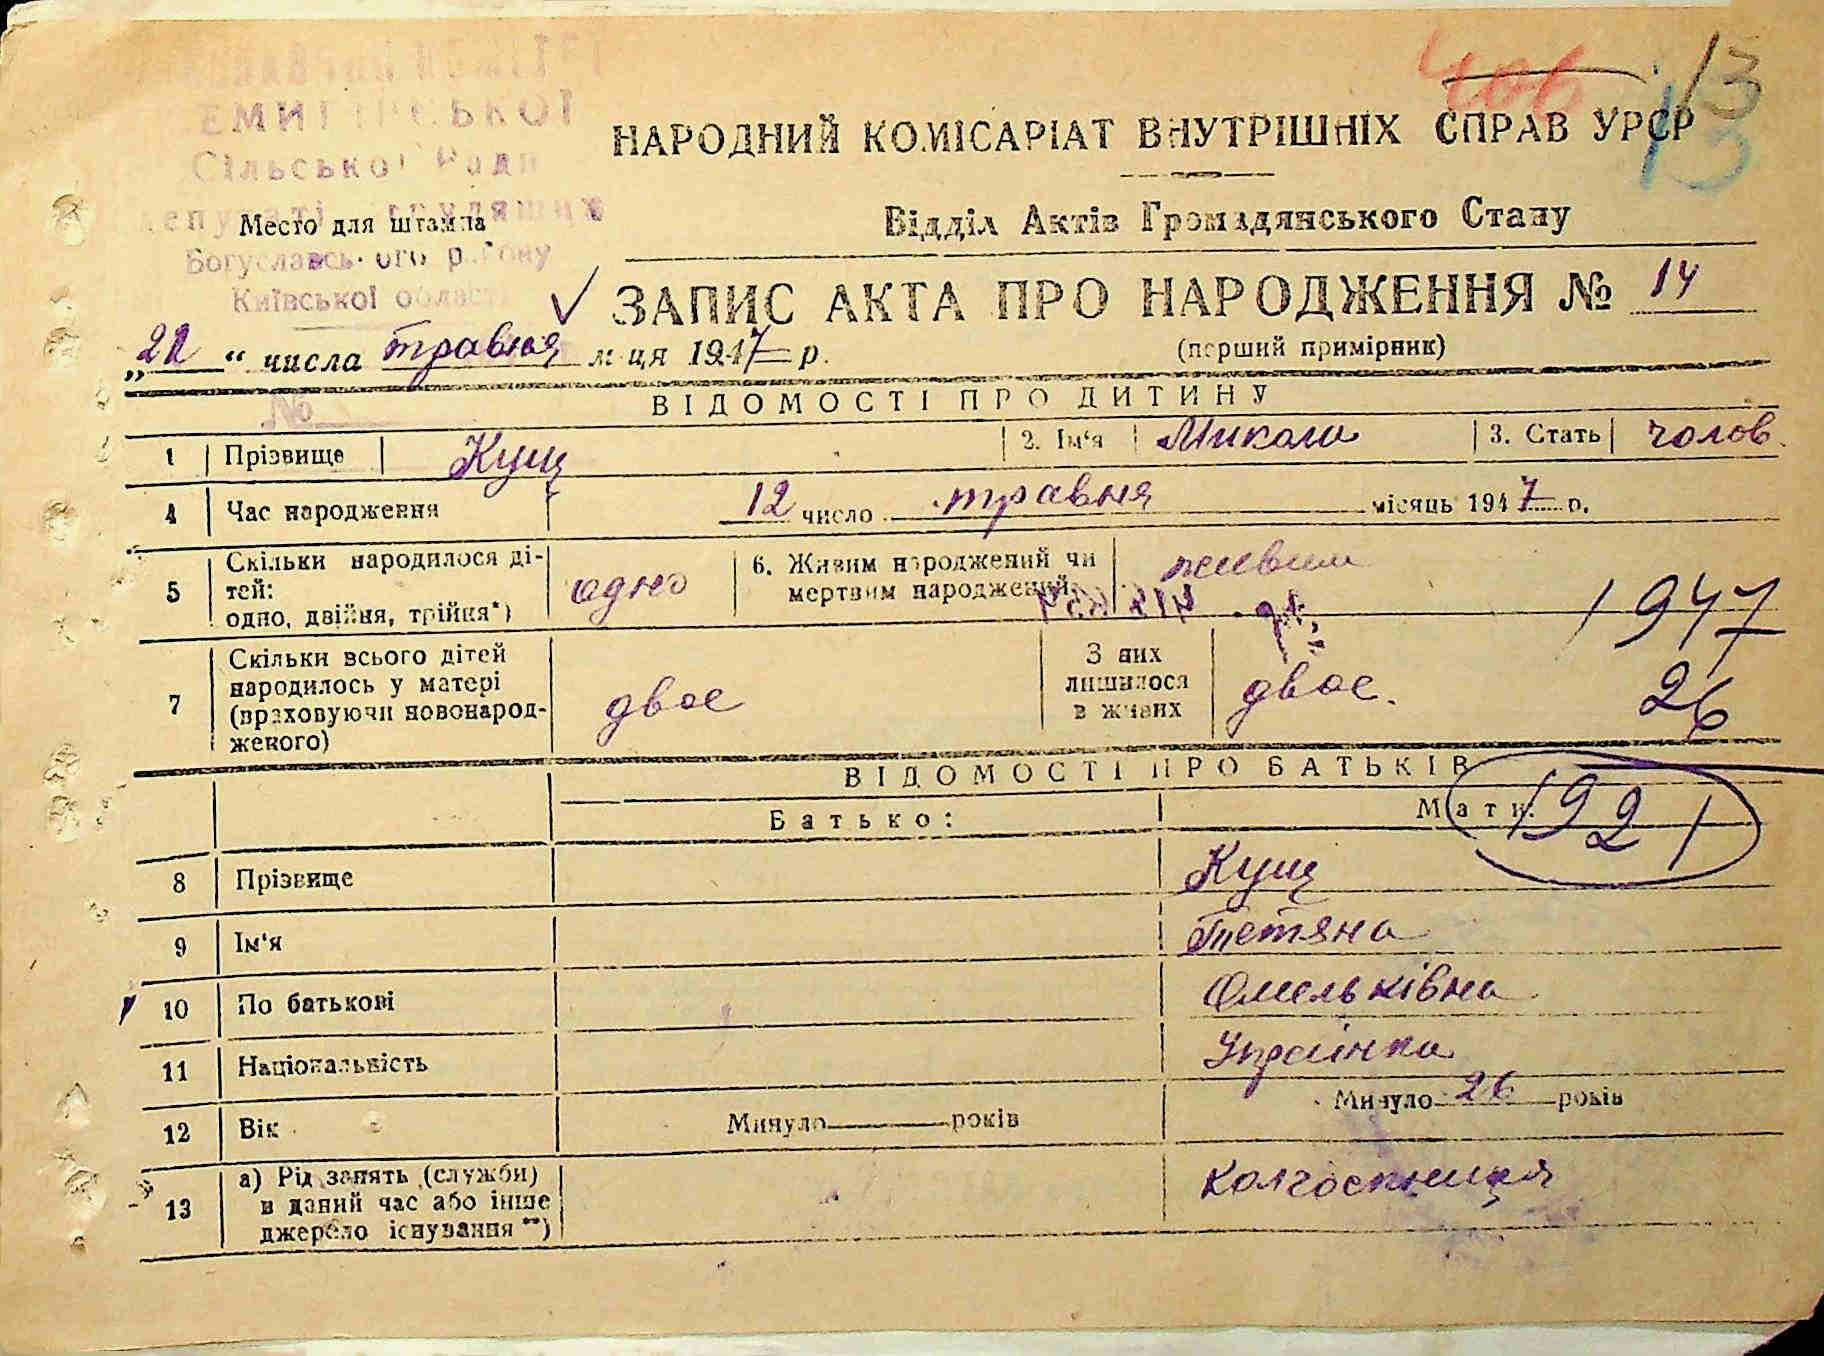 406
13
13
Сільської Ради
Богуславського району
Київської області
Место для штампа
НАРОДНИЙ КОМІСАРІАТ ВНУТРІШНІХ СПРАВ УРСР
Відділ Актів Громадянського Стану
ЗАПИС АКТА ПРО НАРОДЖЕННЯ № 14
(перший примірник)
„22“ числа травня м-ця 1947 р.
№
ВІДОМОСТІ ПРО ДИТИНУ
1 Прізвище Кущ 2. Ім‘я Микола 3. Стать чолов.
4 Час народження 12 число травня місяць 1947 р.
5 Скільки народилося ді-
тей:
одно, двійня, трійня*)
одно
6. Живим народжений чи
мертвим народжений
живим
7 Скільки всього дітей
народилось у матері
(враховуючи новонарод-
женого)
двое
З них
лишилося
в живих
двое.
1947
26
1921
ВІДОМОСТІ ПРО БАТЬКІВ
Батько: Мати:
8 Прізвище Кущ
9 Ім‘я Тетяна
10 По батькові Омельківна
11 Національність Українка
12 Вік Минуло років Минуло 26 років
13 а) Рід занять (служби)
в даний час або інше
джерело існування **)
колгоспниця